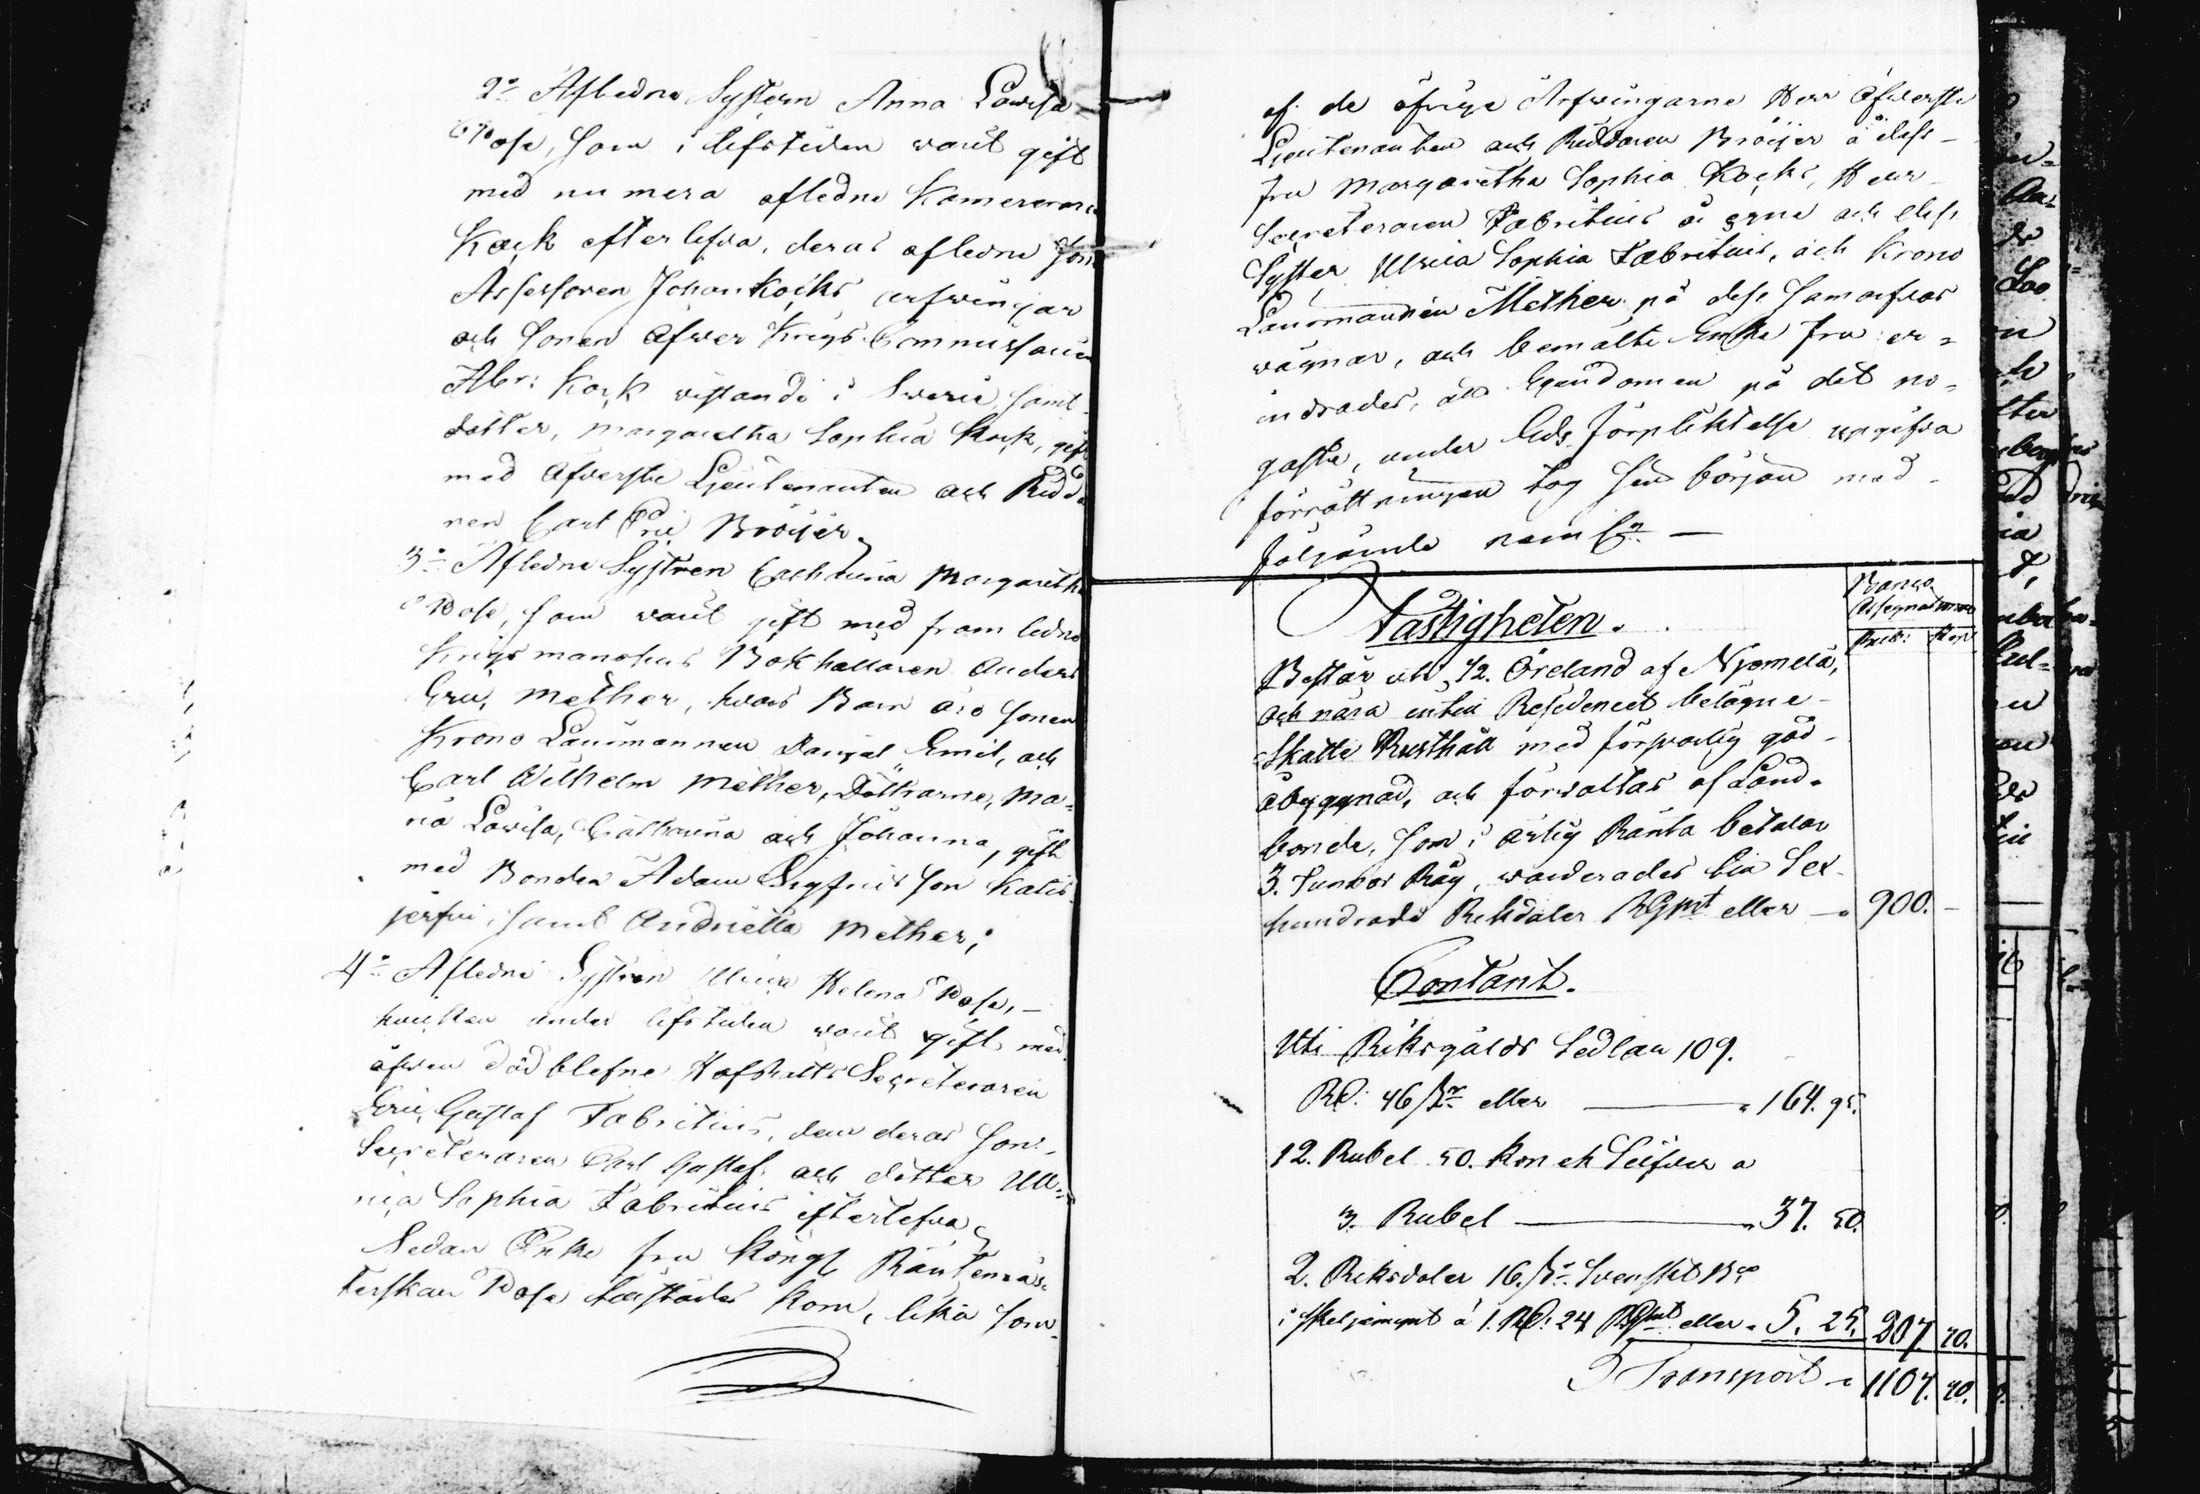 2:o Afledne Systern Anna Lowisa
Pose, som i lifstiden warit gift
med nu mera afledne Kamereraren
Kock efterlefva, deras afledne Son
Assessoren Johan Kocks arfwingar
och Sonen Öfwer Krigs Commissarien
Abr: Kock wistande i Swerie samt
dotter, Margaretha Sophia Kock, gift
med Öfverste Lieutenanten och Ridda
ren Carl Eric Bröijer
3:o Afledne Systren Catharina Margaretha
Pose, som warit gift med framledne
Krigsmanshus Bokhållaren Anders
Eric Mether, hvars Barn äro Sonen
Krono Länsmannen Daniel Emil, och
Carl Wilhelm Mether, Döttrarne, Ma-
ria Lowisa, Catharina och Johanna, gift
med Bonden Adam Sigfrids Son Katis
jerfvi, samt Andrietta Mether;
4:o Afledne Systren Ulrica Helena Pose,
hvilken under lifstiden warit gift med
äfven död blefne Hofrätts Secreteraren
Eric Gustaf Fabritius, dem deras Son
Secreteraren Carl Gustaf och dotter Ull-
rica Sophia Fabritius efterlefva,
Sedan Enke fru Kongl Räntemäs-
terskan Pose tillstädes kom, lika som
af de öfrige Arfwingarne Herr Öfverste
Lieutenanten och Riddaren Bröijer å dess
fru Margaretha Sophia Kocks, Herr
Secreteraren Fabritius å egne och dess
Syster Ulrica Sophia Fabritius, och Krono
Länsmannen Mether på dess Samarfvas
wägnar, och bemälte Enke fru er-
indrades, att Egendomen på det no-
gaste, under Eds förpliktelse uppgifva
förrättningen tog sin början med
följande
Fastigheten.
Banco
Assignationer
Rub: Kop:
Består uti 12. Öreland af Njemelä,
och nära intill Residencet belägne
Skatte Rusthåll med försvarlig god
åbyggnad, och förvaltas af Land-
bonde, som i årlig Ränta betalar
3. Tunnor Råg, värderades till Sex
hundrade Riksdaler RGmt eller — 900. —
Contant.
Uti Riksgälds Sedlar 109.
RD: 46 sk: eller — 164. 95.
12. Rubel 50. Kopek Silfver a
3. Rubel — 37. 50.
2. Riksdaler 16. sk: Svenskt B:co
i skiljemynt à 1. RD: 24 RGmt eller 5. 25. 207. 70.
Transport 1107. 70.